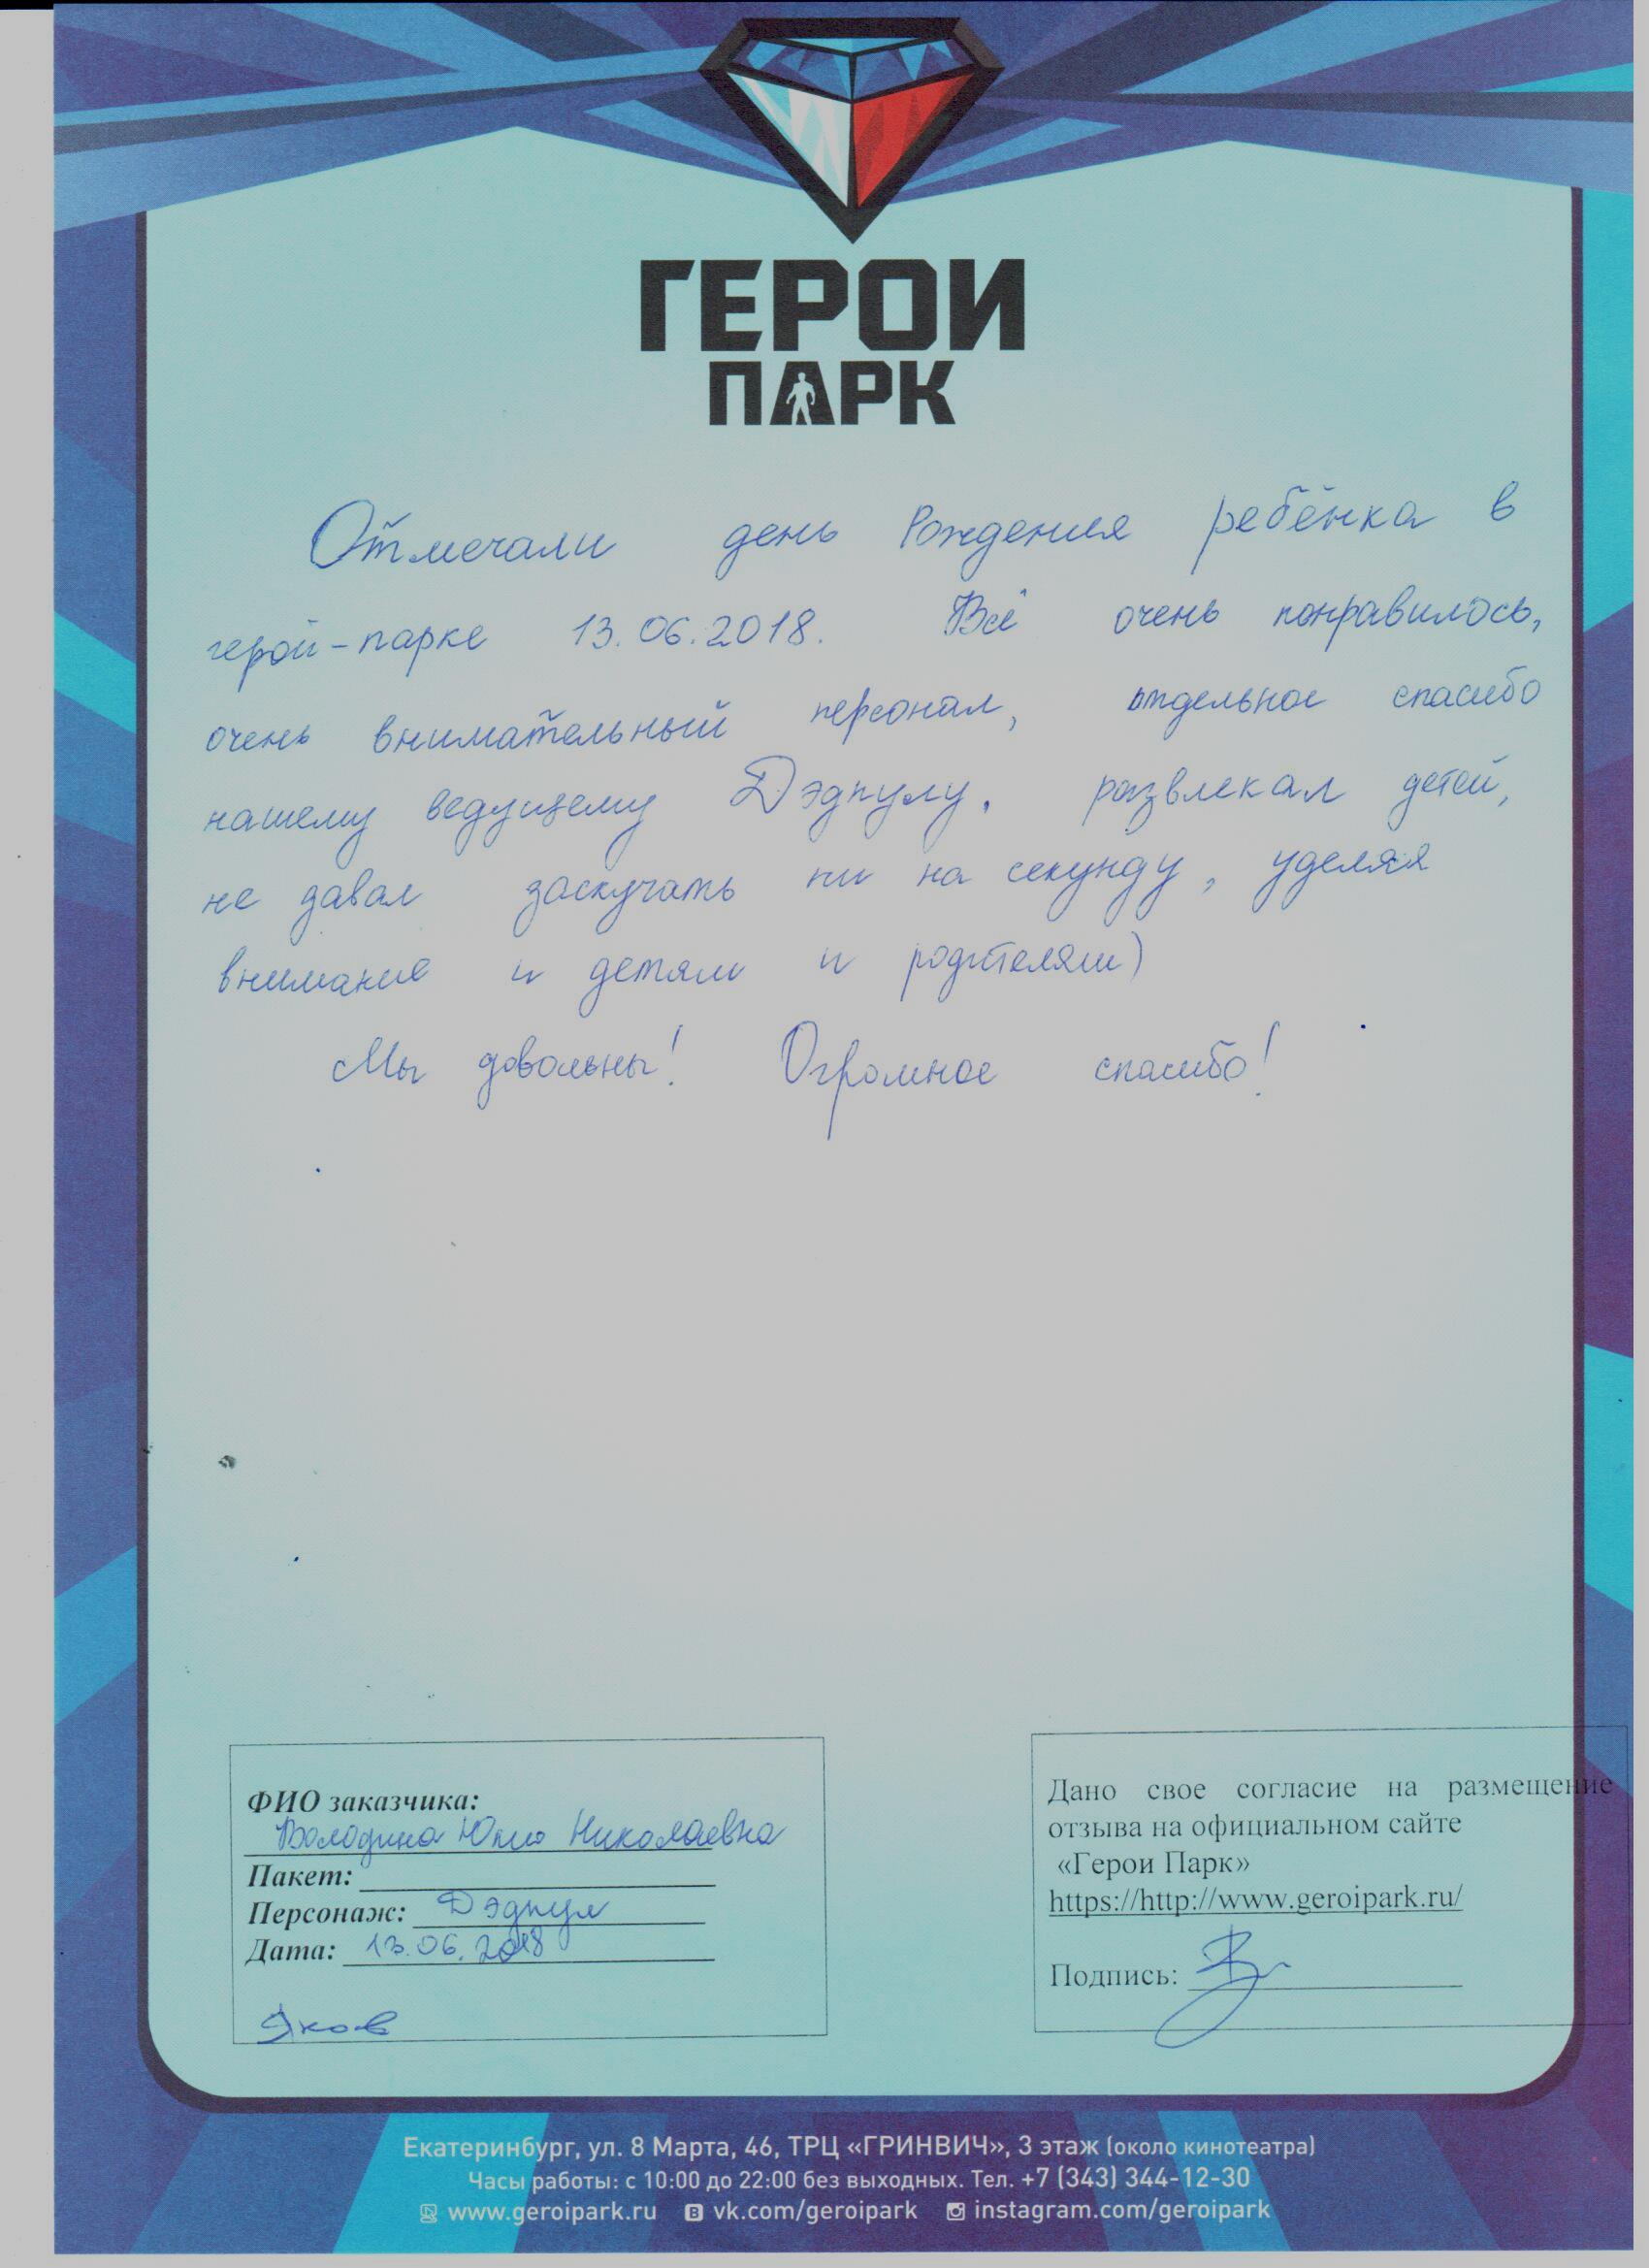 ГЕРОИ
ПАРК
Отмечали день Рождения ребёнка в
герой-парке 13.06.2018. Всё очень понравилось,
очень внимательный персонал, отдельное спасибо
нашему ведущему Дэдпулу, развлекал детей,
не давал заскучать ни на секунду, уделяя
внимание и детям и родителям)
Мы довольны! Огромное спасибо!
ФИО заказчика:
Володина Юлия Николаевна
Пакет:
Персонаж: Дэдпул
Дата: 13.06.2018
Яков
Дано свое согласие на размещение
отзыва на официальном сайте
«Герои Парк»
https://http://www.geroipark.ru/
Подпись:
Екатеринбург, ул. 8 Марта, 46, ТРЦ «ГРИНВИЧ», 3 этаж (около кинотеатра)
Часы работы: с 10:00 до 22:00 без выходных. Тел. +7 (343) 344-12-30
www.geroipark.ru vk.com/geroipark instagram.com/geroipark